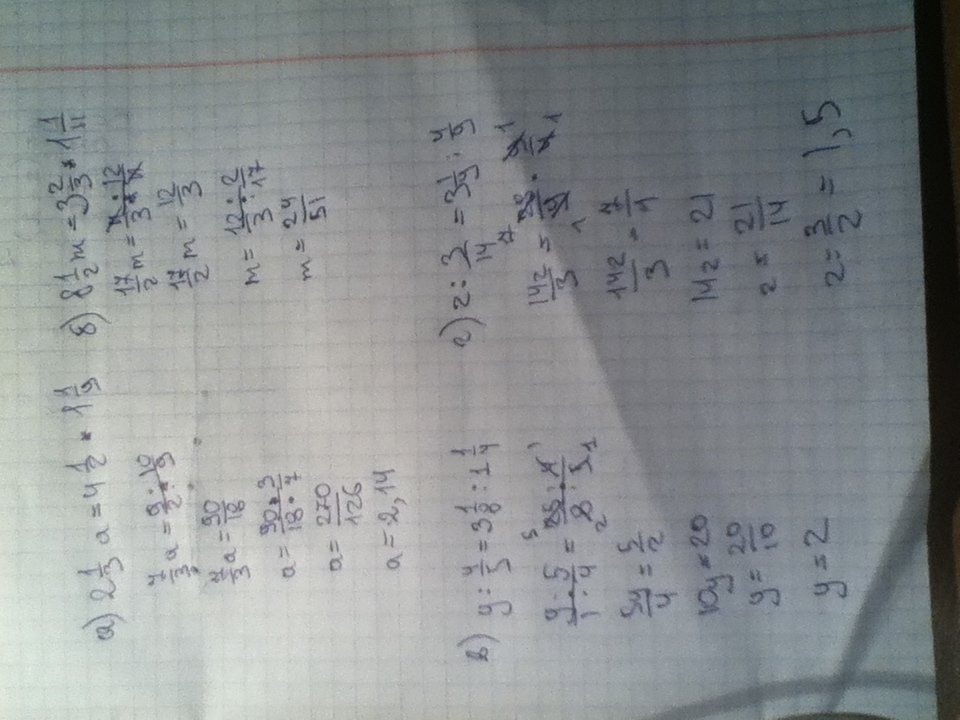 а) 2 1/3 a = 4 1/2 · 1 1/9
7/3 a = 9 · 10 / 2 · 9
7/3 a = 90/18
a = 90 · 3 / 18 · 7
a = 270/126
a = 2,14
б) 8 1/2 m = 3 2/3 · 1 1/11
17/2 m = 11 · 12 / 3 · 11
17/2 m = 12/3
m = 12 · 2 / 3 · 17
m = 24/51
в) y : 4/5 = 3 1/8 : 1 1/4
y · 5 / 1 · 4 = 25 · 4 / 8 · 5
5y/4 = 5/2
10y = 20
y = 20/10
y = 2
г) z : 3/14 = 3 1/9 : 4/9
14z/3 = 28/9 · 9/4
14z/3 = 7/1
14z = 21
z = 21/14
z = 3/2 = 1,5